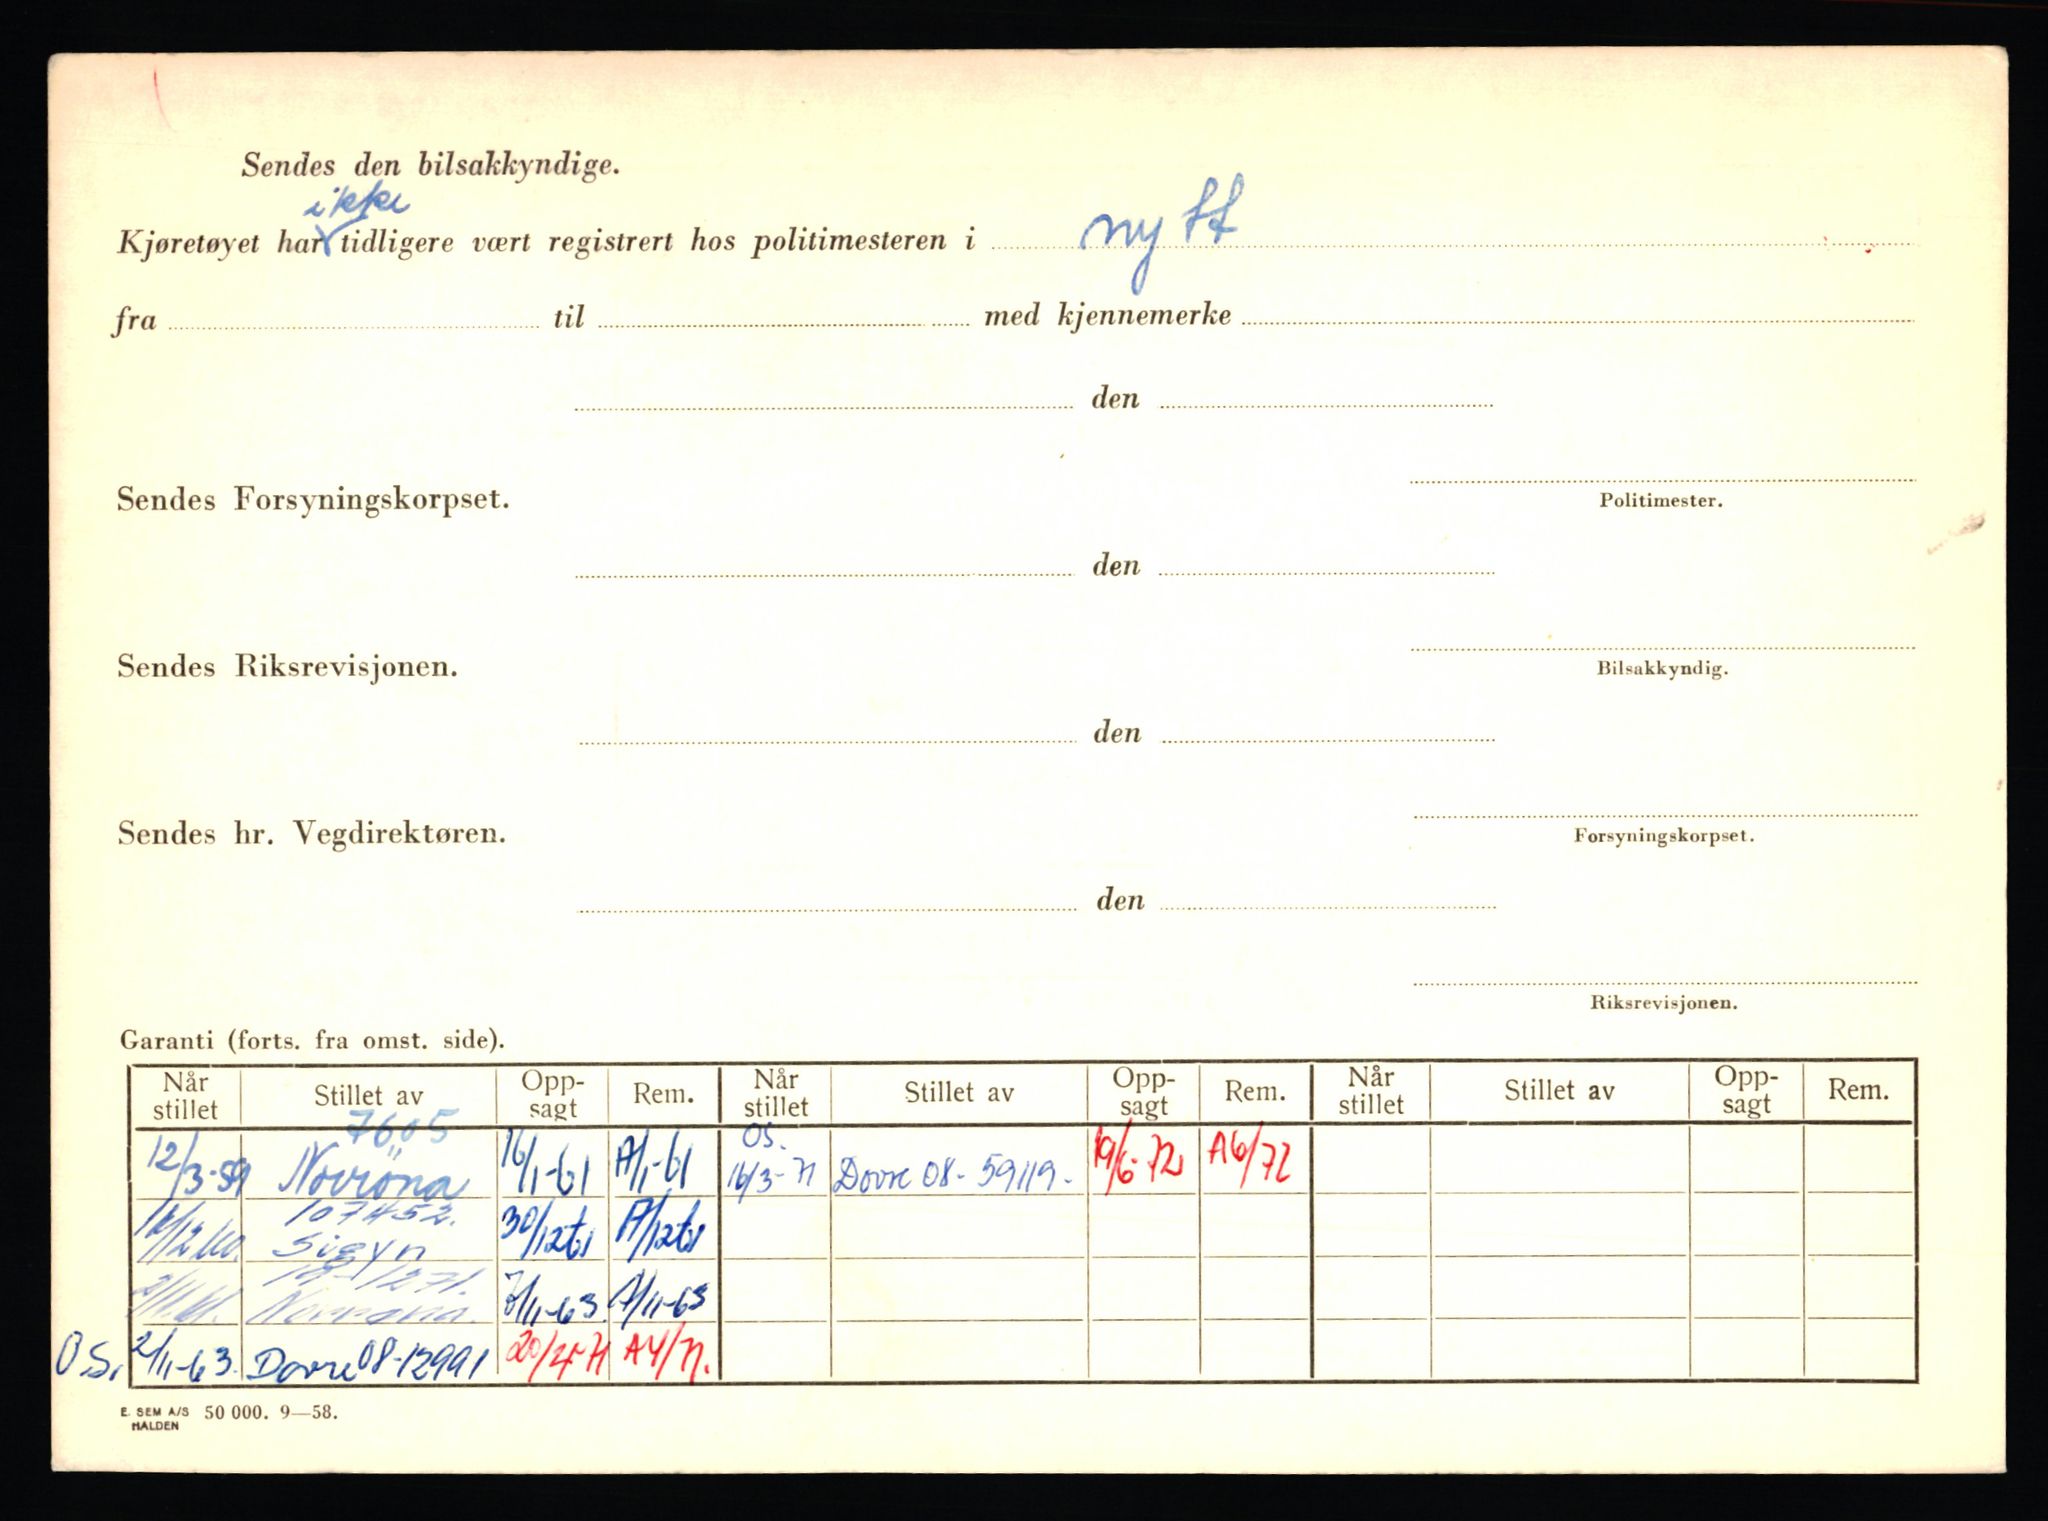 Sendes den bilsakkyndige.
ikke
Kjøretøyet har tidligere vært registrert hos politimesteren i nytt
fra til med kjennemerke
den
Politimester.
Sendes Forsyningskorpset.
den
Bilsakkyndig.
Sendes Riksrevisjonen.
den
Forsyningskorpset.
Sendes hr. Vegdirektøren.
den
Riksrevisjonen.
Garanti (forts. fra omst. side).
Når stillet Stillet av Opp-sagt Rem. Når stillet Stillet av Opp-sagt Rem. Når stillet Stillet av Opp-sagt Rem.
7605 OS.
12/3-59 Norröna 16/1-61 A/1-61 16/3-71 Dovre 08-59119- 19/6-72 A6/72
107452.
Sigyn 30/12 61 A/12 61
Norrøna. 7/11-63. A/11-63
O.S. 2/11-63. Dovre 08-12991 20/4-71 A4/71.
E. SEM A/S HALDEN 50 000. 9—58.